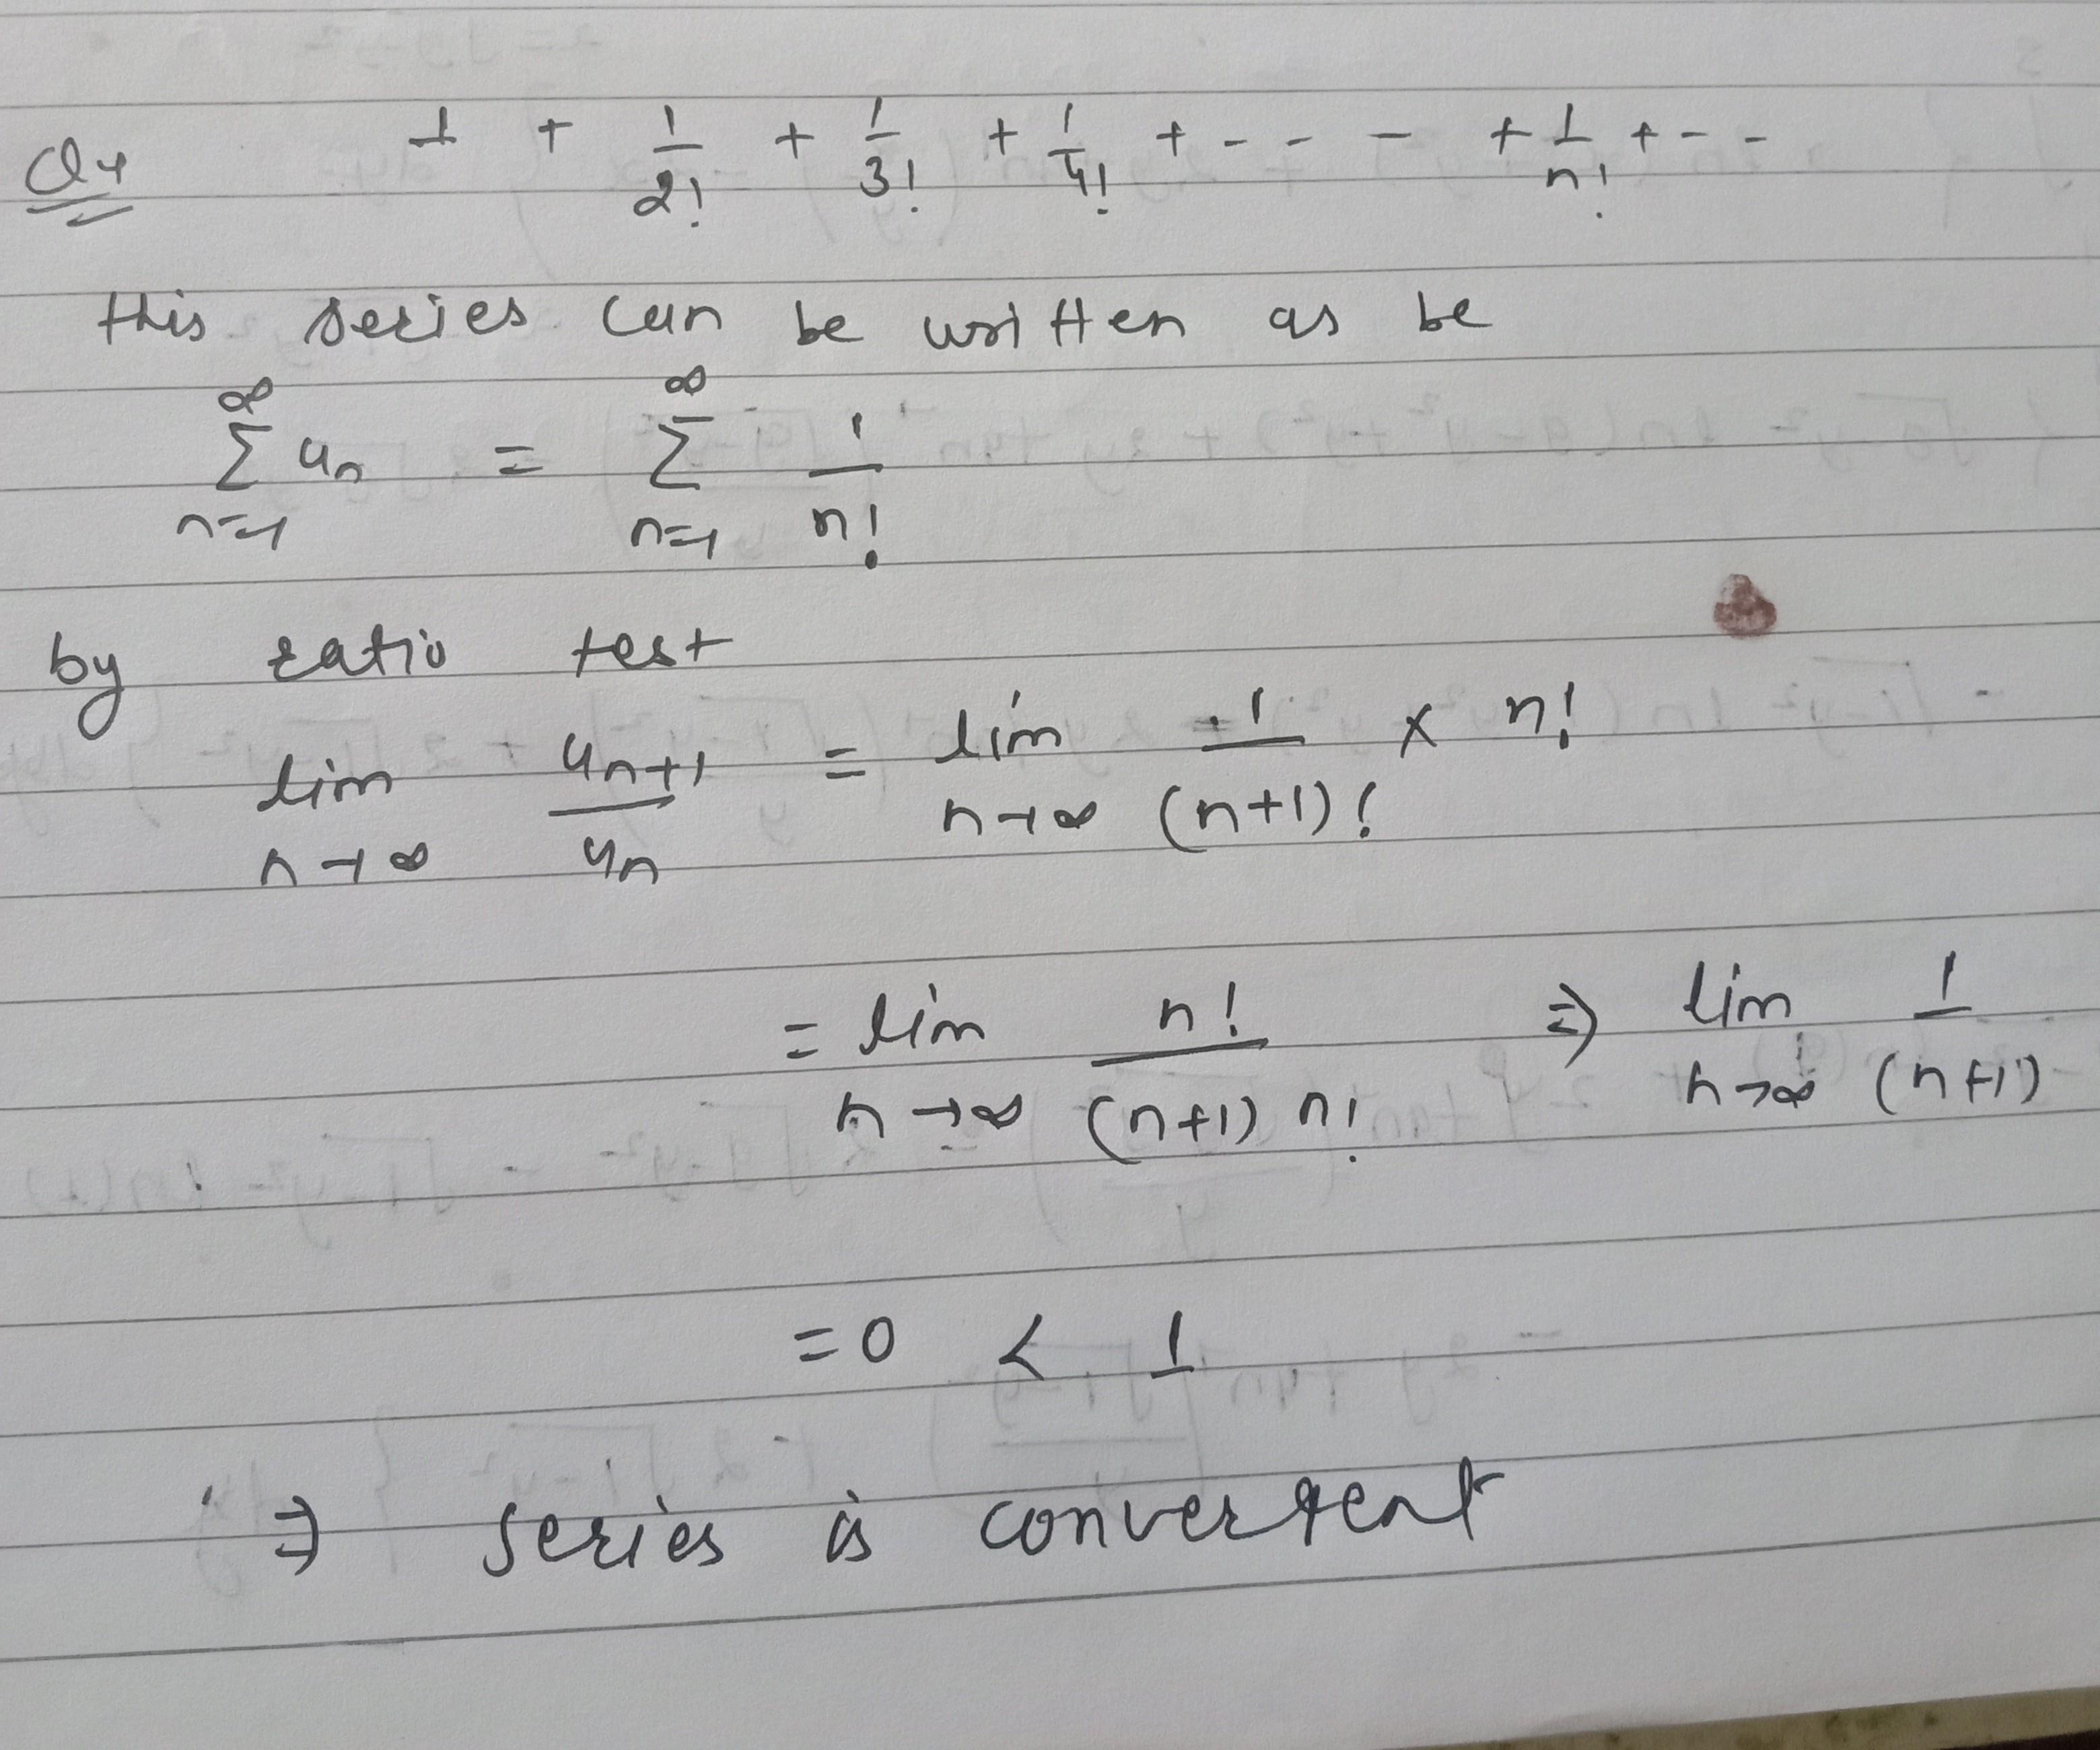 Q4 1 + 1/2! + 1/3! + 1/4! + - - - + 1/n! + - -
this series can be written as be
∞ ∑ n=1 un = ∞ ∑ n=1 1/n!
by ratio test
lim n→∞ un+1/un = lim n→∞ 1/(n+1)! × n!
= lim n→∞ n!/(n+1) n! ⇒ lim n→∞ 1/(n+1)
= 0 < 1
⇒ series is convergent